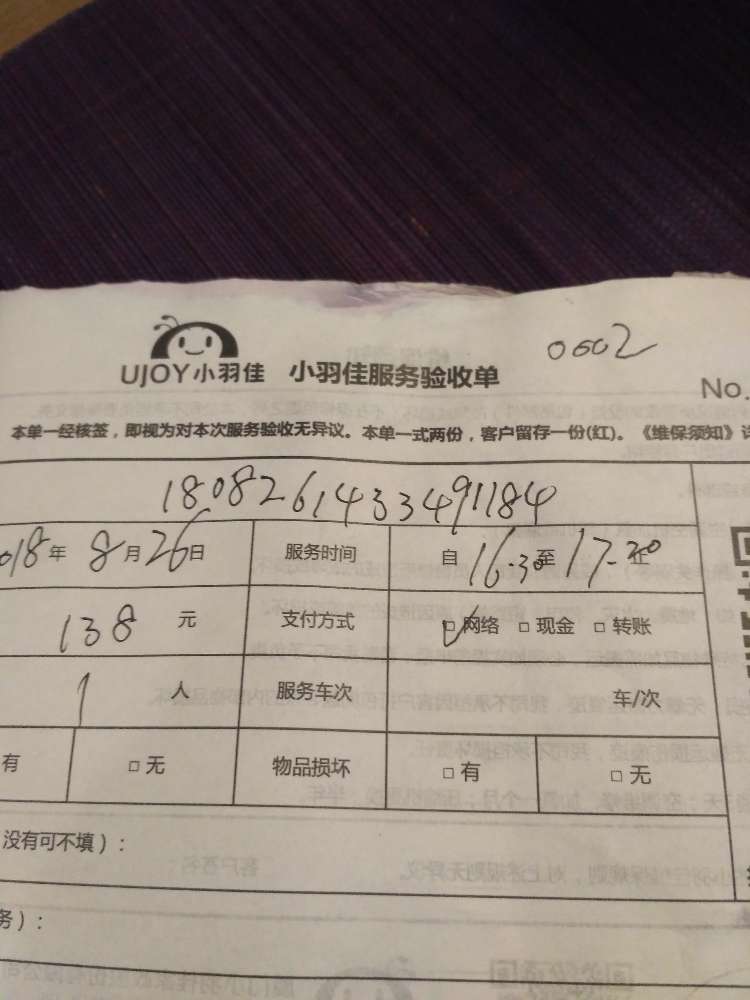 0602
UJOY小羽佳 小羽佳服务验收单
No.
本单一经核签，即视为对本次服务验收无异议。本单一式两份，客户留存一份(红)。《维保须知》详
1808261433491184
018年 8月26日 服务时间 自16-30至17-30
138 元 支付方式 ☑网络 □现金 □转账
1 人 服务车次 车/次
有 □无 物品损坏 □有 □无
没有可不填）：
务）：